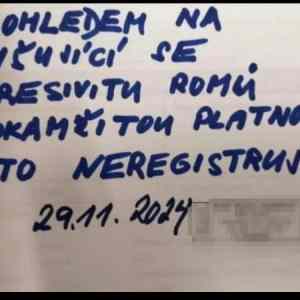 OHLEDEM NA
ŠUJÍCÍ SE
RESIVITU ROMŮ
OKAMŽITOU PLATNO
TO NEREGISTRUJ
29.11.2024